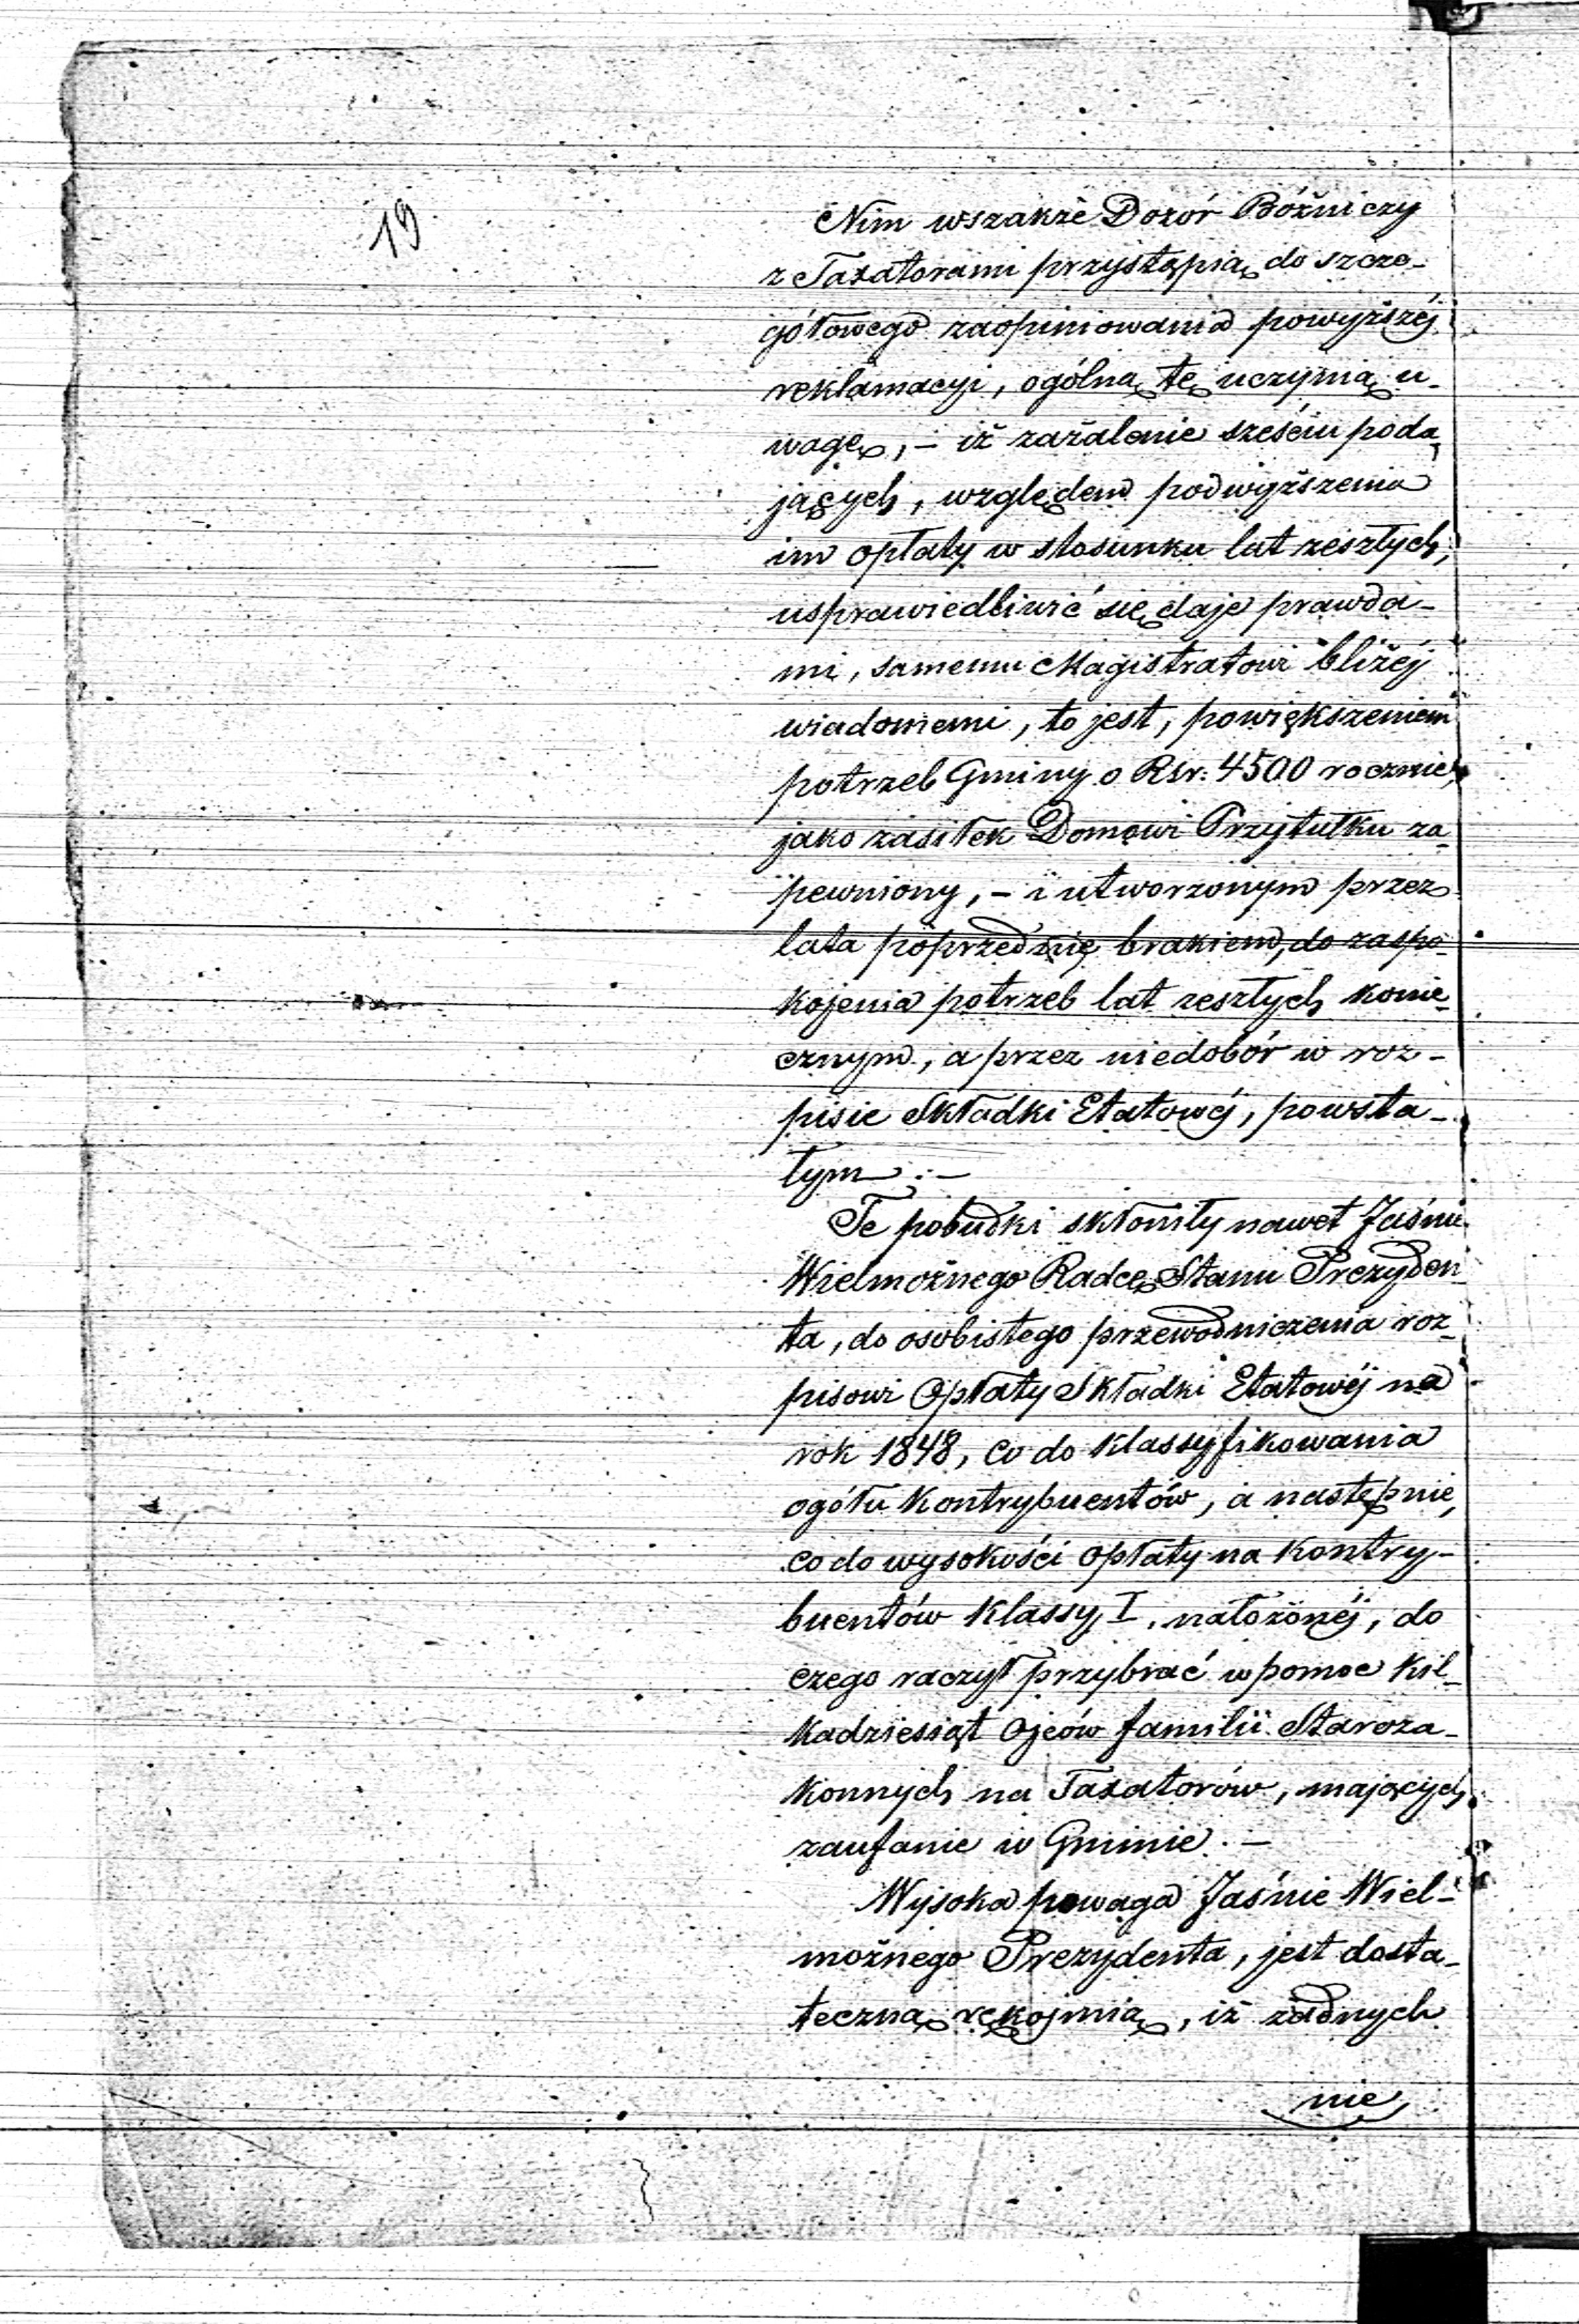 19
Nim wszakże Dozór Bóżniczy
z Taxatorami przystąpią do szcze-
gółowego zaopiniowania powyższéj
reklamacyi, ogólną tę uczynią u-
wagę, – iż zażalenie sześciu poda-
jących, względem podwyższenia
im opłaty w stosunku lat zeszłych,
usprawiedliwić się daje prawda-
mi, samemu Magistratowi bliżéj
wiadomemi, to jest, powiększeniem
potrzeb Gminy o Rsr: 4500 rocznie,
jako zasiłek Domowi Przytułku za-
pewniony, – i utworzonym przez
lata poprzednie brakiem, do zaspo-
kojenia potrzeb lat zeszłych konie-
cznym, a przez niedobór w roz-
pisie Składki Etatowéj, powsta-
łym. –
Te pobudki skłoniły nawet Jaśnie
Wielmożnego Radcę Stanu Prezyden-
ta, do osobistego przewodniczenia roz-
pisowi Opłaty Składki Etatowéj na
rok 1848, co do klassyfikowania
ogółu Kontrybuentów, a następnie,
co do wysokości opłaty na Kontry-
buentów Klassy I. nałożonéj, do
czego raczył przybrać w pomoc kil-
kadziesiąt Ojców familii Staroza-
konnych na Taxatorów, mających
zaufanie w Gminie. –
Wysoka powaga Jaśnie Wiel-
możnego Prezydenta, jest dosta-
teczną rękojmią, iż żadnych
nie